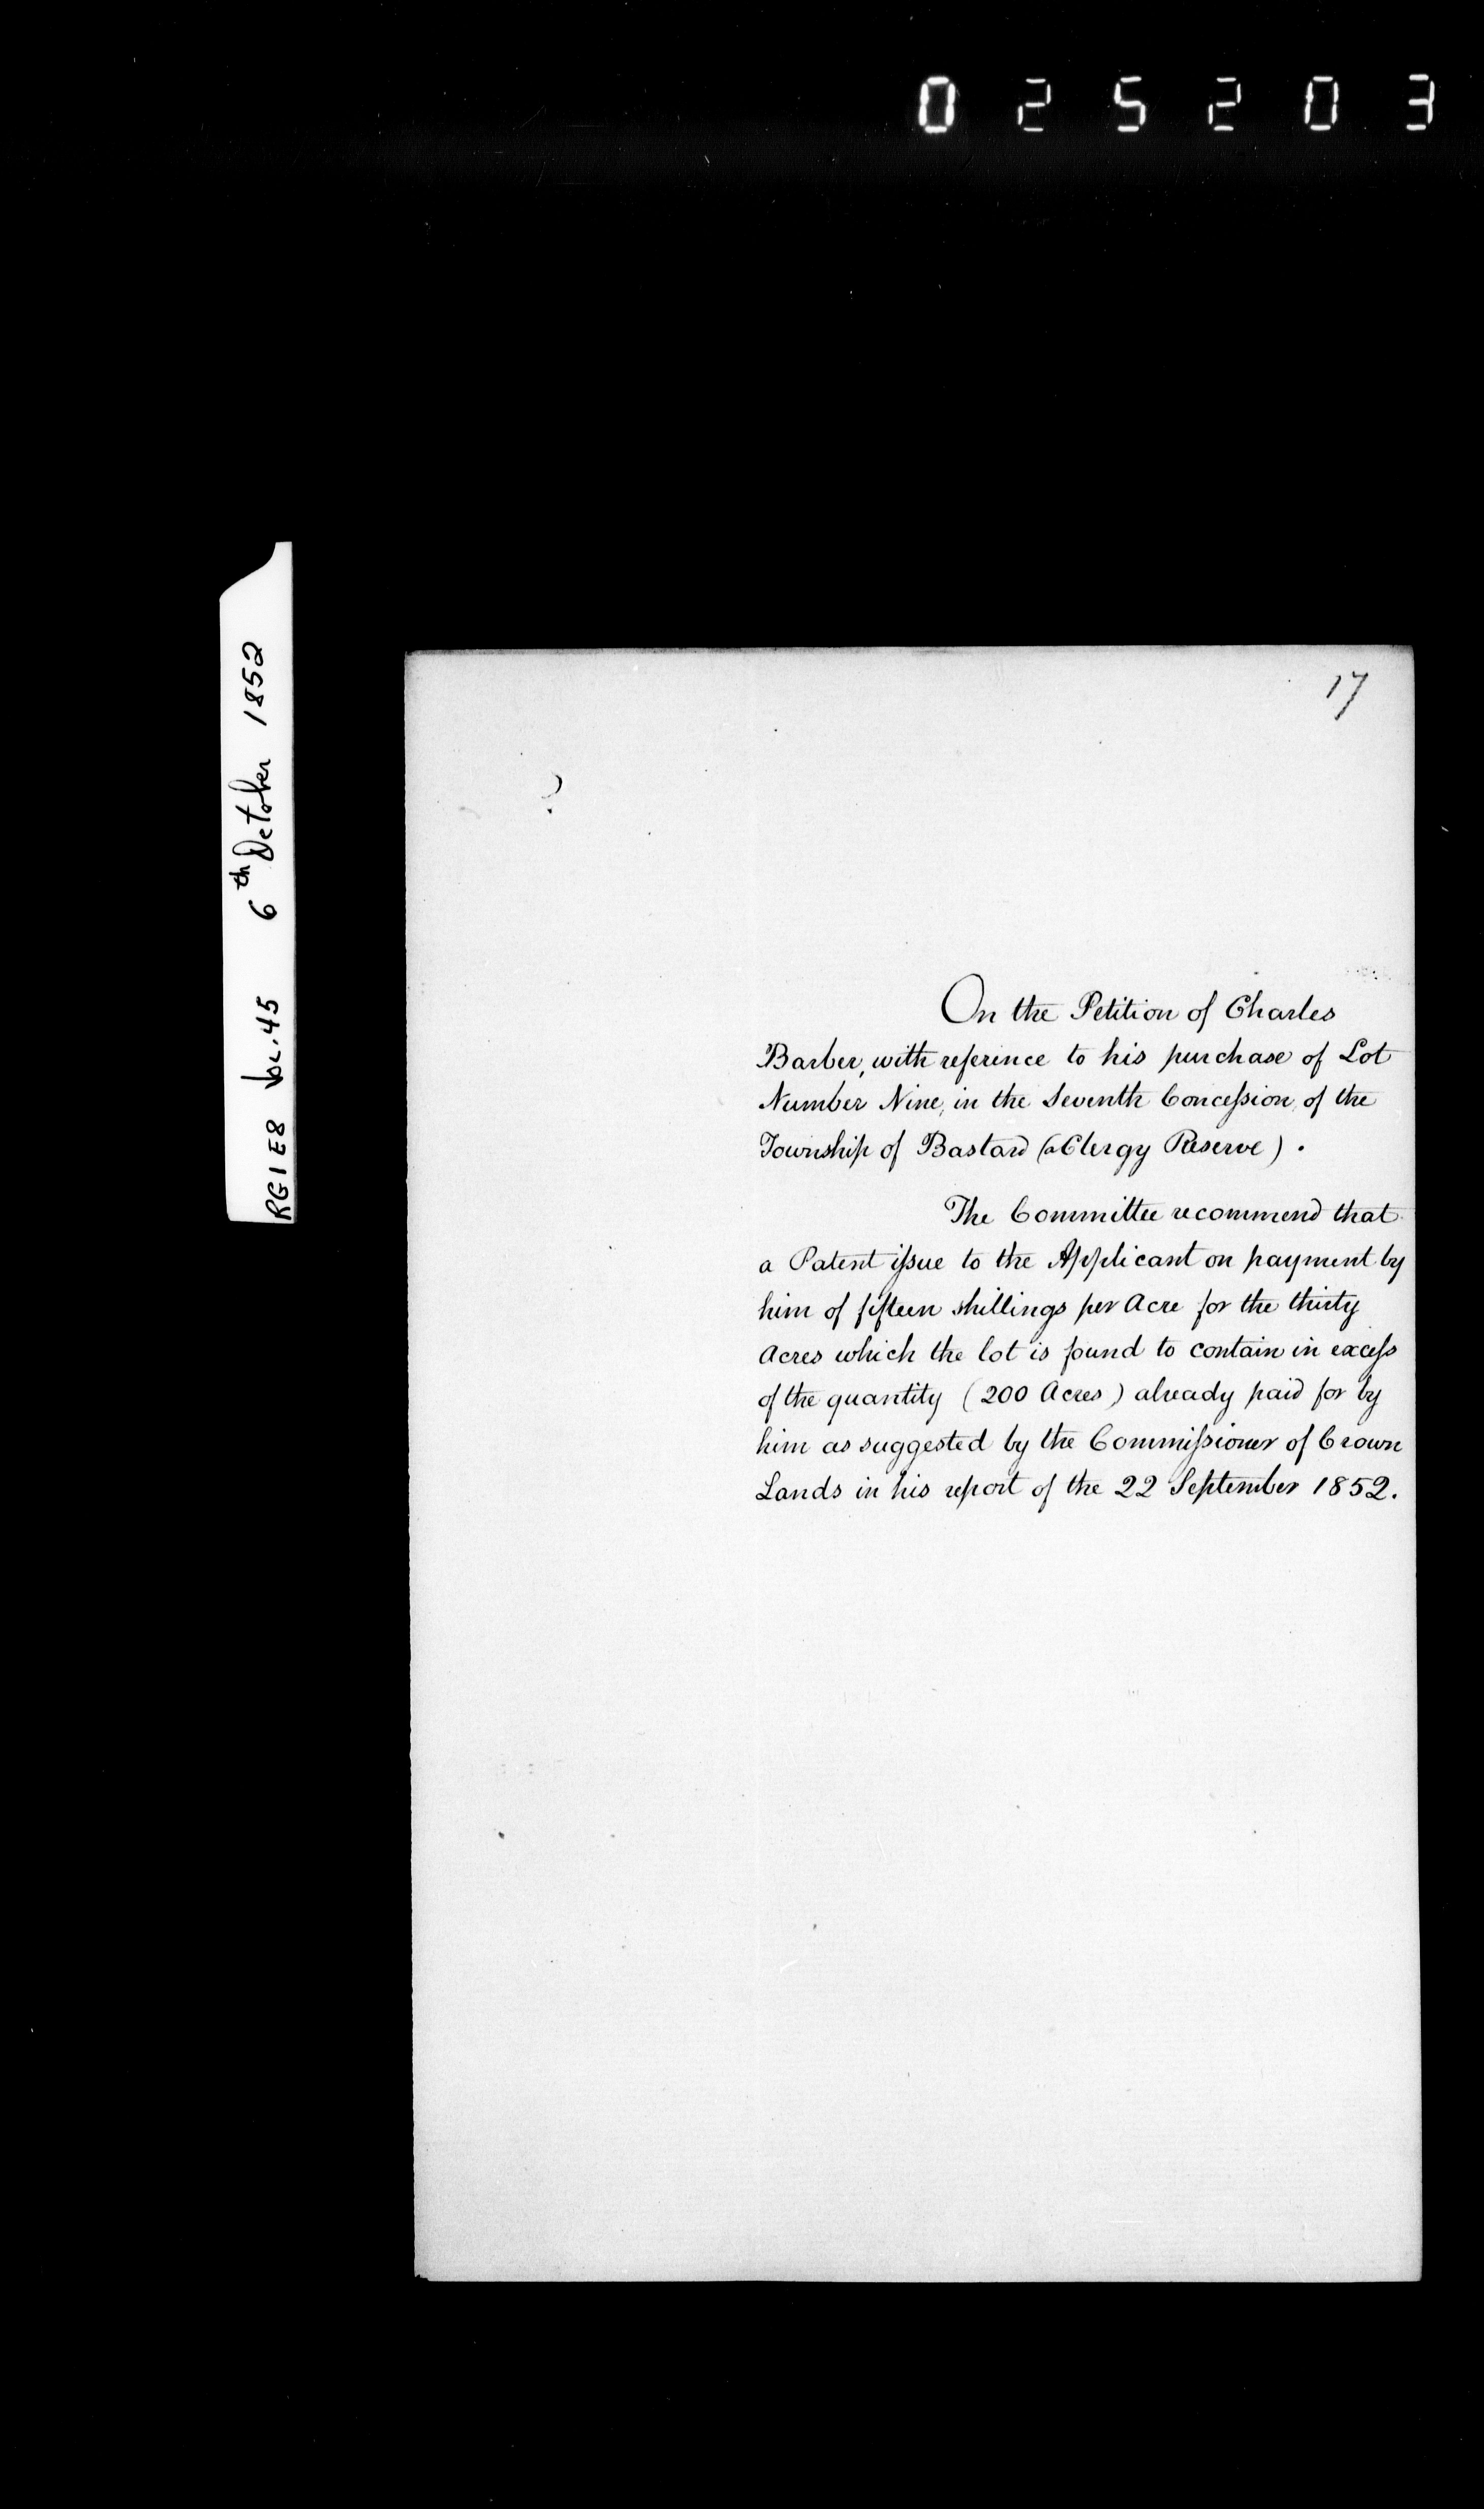 025203
RG1E8 Vol.45 6th October 1852
17
?
On the Petition of Charles
Barber, with reference to his purchase of Lot
Number Nine, in the Seventh Concession, of the
Township of Bastard (a Clergy Reserve).
The Committee recommend that
a Patent issue to the Applicant on payment by
him of fifteen shillings per Acre for the thirty
Acres which the lot is found to contain in excess
of the quantity (200 Acres) already paid for by
him as suggested by the Commissioner of Crown
Lands in his report of the 22 September 1852.